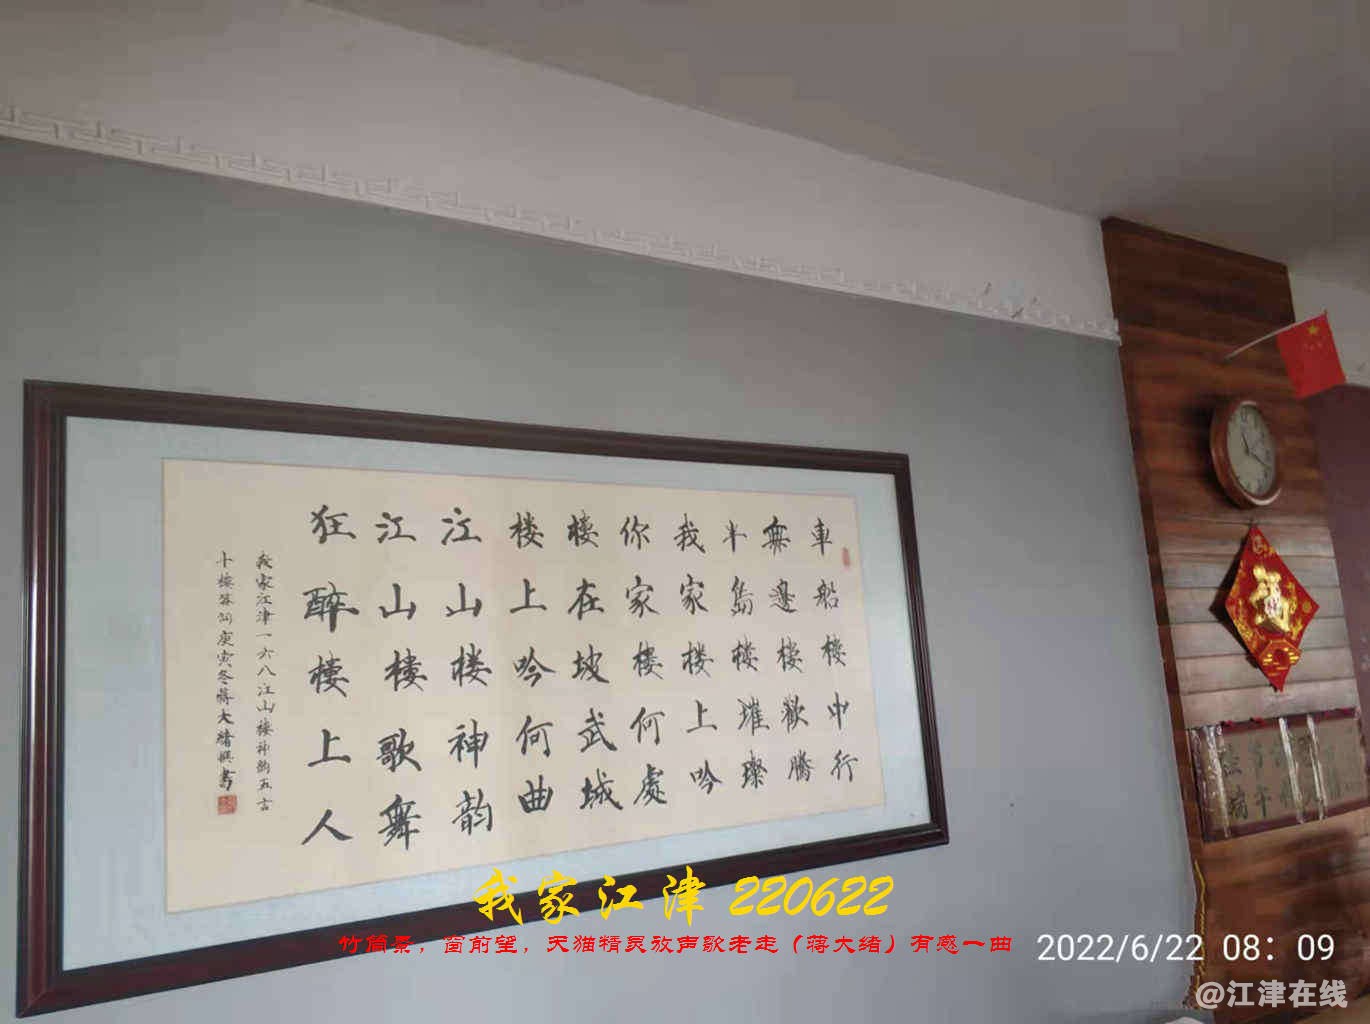 車船楼中行
無邊楼歡騰
半島楼璀璨
我家楼上吟
你家楼何處
楼在坡武城
楼上吟何曲
江山楼神韵
江山楼歌舞
狂醉楼上人
我家江津一六八江山楼神韵五言
十楼 庚寅冬蒋大绪撰书
福
我家江津 220622
竹筒景，窗前望，天猫精灵放声歌老走（蒋大绪）有感一曲
2022/6/22 08：09
@江津在线